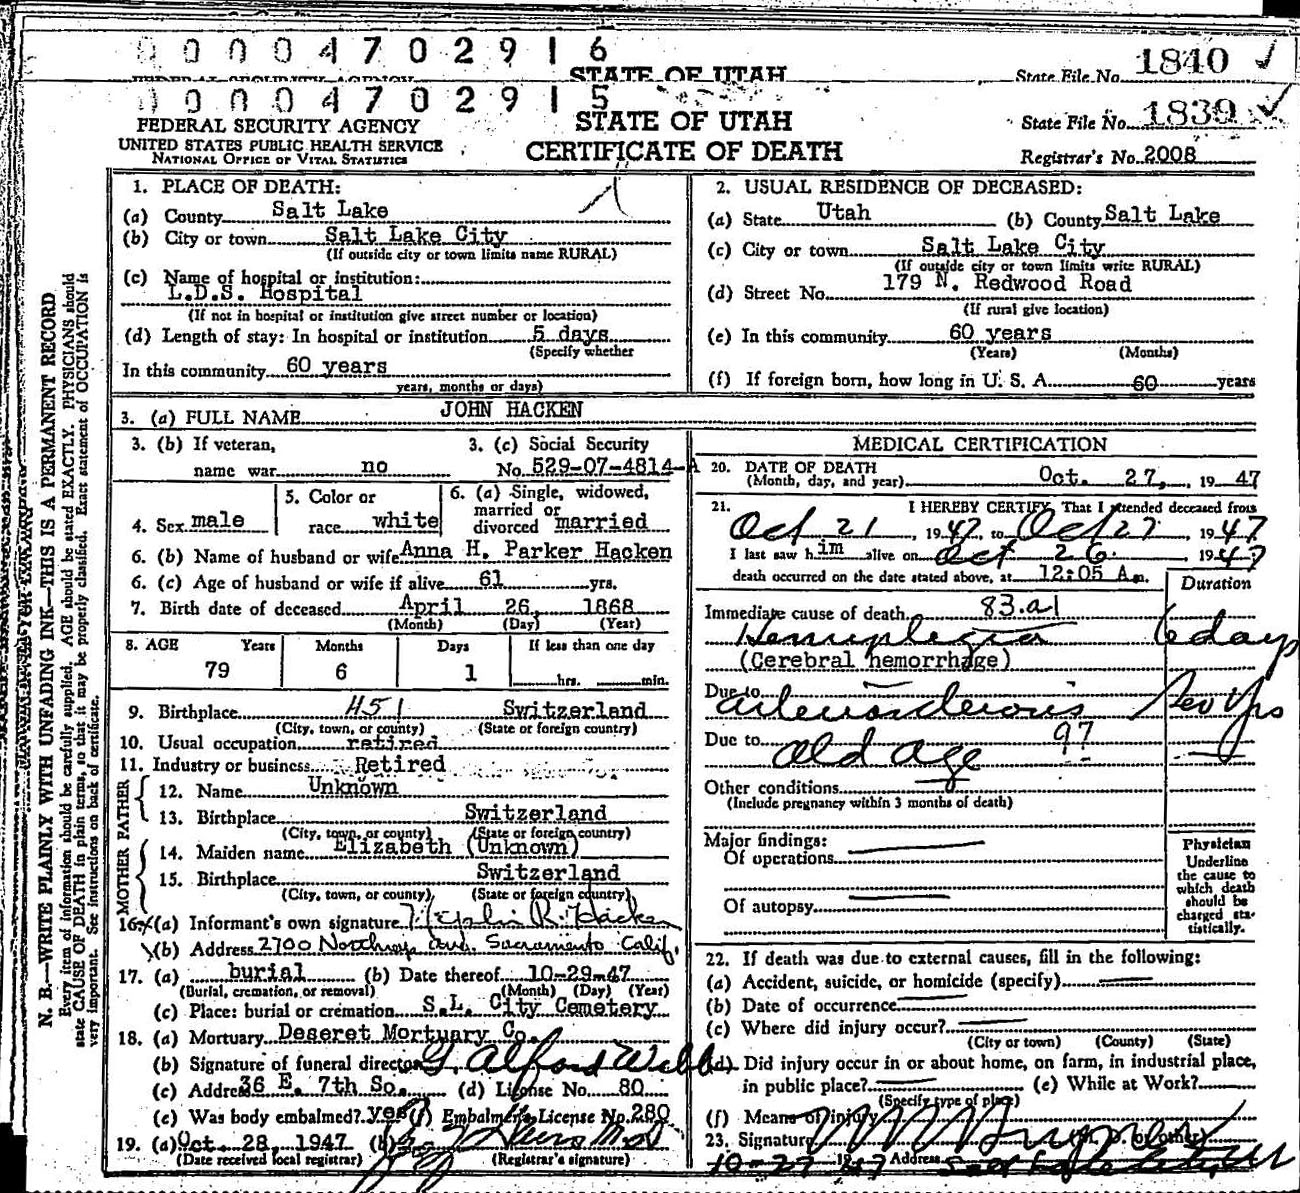 0 0 0 0 4 7 0 2 9 1 6
STATE OF UTAH
State File No. 1840
0 0 0 0 4 7 0 2 9 1 5
FEDERAL SECURITY AGENCY
UNITED STATES PUBLIC HEALTH SERVICE
NATIONAL OFFICE OF VITAL STATISTICS
STATE OF UTAH
CERTIFICATE OF DEATH
State File No. 1839
Registrar's No. 2008
N. B.—WRITE PLAINLY WITH UNFADING INK—THIS IS A PERMANENT RECORD
Every item of information should be carefully supplied. AGE should be stated EXACTLY. PHYSICIANS should
state CAUSE OF DEATH in plain terms, so that it may be properly classified. Exact statement of OCCUPATION is
very important. See instructions on back of certificate.
1. PLACE OF DEATH:
(a) County Salt Lake
(b) City or town Salt Lake City
(If outside city or town limits name RURAL)
(c) Name of hospital or institution:
L.D.S. Hospital
(If not in hospital or institution give street number or location)
(d) Length of stay: In hospital or institution 5 days
(Specify whether
In this community 60 years
years, months or days)
2. USUAL RESIDENCE OF DECEASED:
(a) State Utah (b) County Salt Lake
(c) City or town Salt Lake City
(If outside city or town limits write RURAL)
(d) Street No. 179 N. Redwood Road
(If rural give location)
(e) In this community 60 years
(Years) (Months)
(f) If foreign born, how long in U. S. A. 60 years
3. (a) FULL NAME JOHN HACKEN
3. (b) If veteran,
name war no
3. (c) Social Security
No. 529-07-4814-A
4. Sex male
5. Color or
race white
6. (a) Single, widowed,
married or
divorced married
6. (b) Name of husband or wife Anna H. Parker Hacken
6. (c) Age of husband or wife if alive 61 yrs.
7. Birth date of deceased April 26, 1868
(Month) (Day) (Year)
8. AGE Years Months Days If less than one day
79 6 1 hrs. min.
9. Birthplace 451 Switzerland
(City, town, or county) (State or foreign country)
10. Usual occupation retired
11. Industry or business Retired
FATHER
12. Name Unknown
13. Birthplace Switzerland
(City, town, or county) (State or foreign country)
MOTHER
14. Maiden name Elizabeth (Unknown)
15. Birthplace Switzerland
(City, town, or county) (State or foreign country)
16. (a) Informant's own signature R. Hacken
(b) Address 2700 Northrop Ave. Sacramento Calif.
17. (a) burial (b) Date thereof 10-29-47
(Burial, cremation, or removal) (Month) (Day) (Year)
(c) Place: burial or cremation S.L. City Cemetery
18. (a) Mortuary Deseret Mortuary Co.
(b) Signature of funeral director G. Alford Webb
(c) Address 36 E. 7th So. (d) License No. 80
(e) Was body embalmed? yes (f) Embalmer's License No. 280
19. (a) Oct. 28, 1947 (b)
(Date received local registrar) (Registrar's signature)
MEDICAL CERTIFICATION
20. DATE OF DEATH
(Month, day, and year) Oct. 27, 19 47
21. I HEREBY CERTIFY, That I attended deceased from
Oct 21, 1947, to Oct 27, 1947
I last saw him alive on Oct 26 1947
death occurred on the date stated above, at 12:05 A m.
Duration
Immediate cause of death 83.a1
Hemiplegia 6 days
(Cerebral hemorrhage)
Due to
Arteriosclerosis Sev Yrs
Due to 97
Old age
Other conditions
(Include pregnancy within 3 months of death)
Major findings:
Of operations
Of autopsy
Physician
Underline
the cause to
which death
should be
charged sta-
tistically.
22. If death was due to external causes, fill in the following:
(a) Accident, suicide, or homicide (specify)
(b) Date of occurrence
(c) Where did injury occur?
(City or town) (County) (State)
(d) Did injury occur in or about home, on farm, in industrial place,
in public place? (e) While at Work?
(Specify type of place)
(f) Means of injury
23. Signature
10-27 1947 Address Salt Lake City, Ut